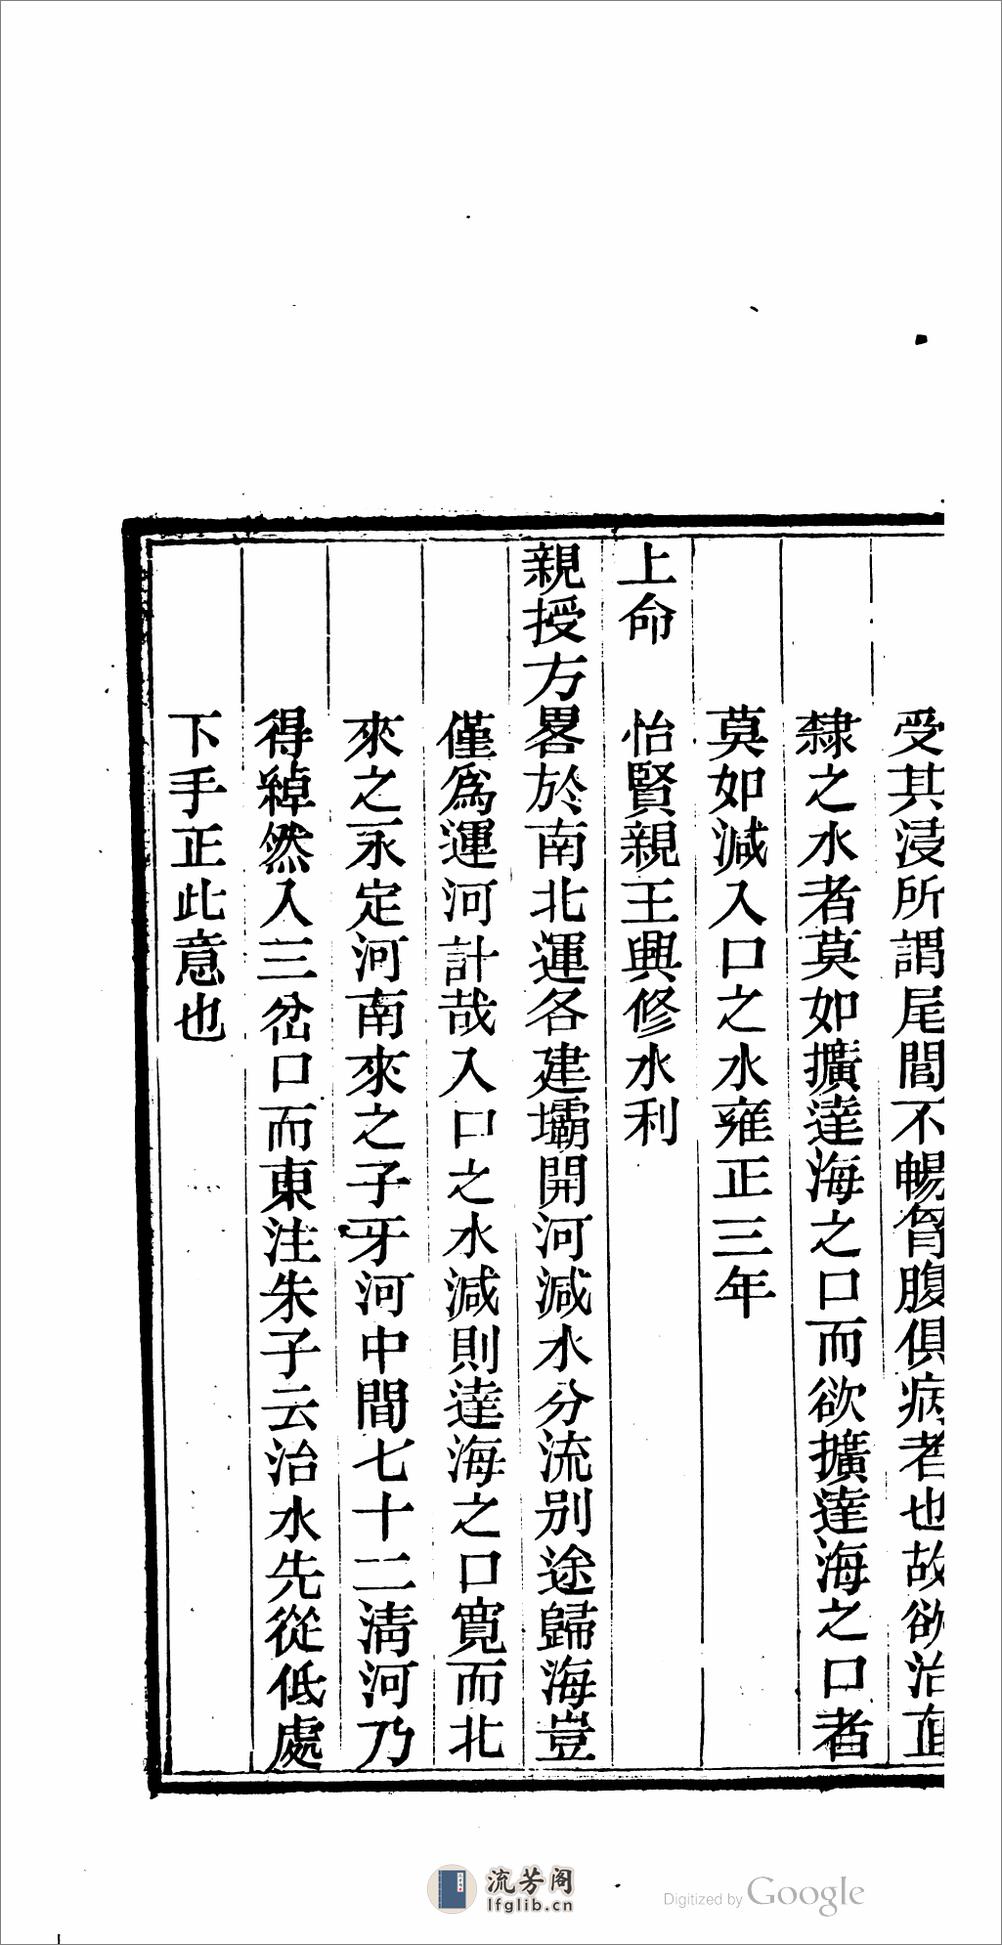 受其浸所謂尾閭不暢胷腹俱病者也故欲治直
隸之水者莫如擴達海之口而欲擴達海之口者
莫如減入口之水雍正三年
上命　怡賢親王興修水利
親授方畧於南北運各建壩開河減水分流別途歸海豈
僅爲運河計哉入口之水減則達海之口寬而北
來之永定河南來之子牙河中間七十二清河乃
得綽然入三岔口而東注朱子云治水先從低處
下手正此意也
流芳阁
lfglib.cn
Digitized by Google